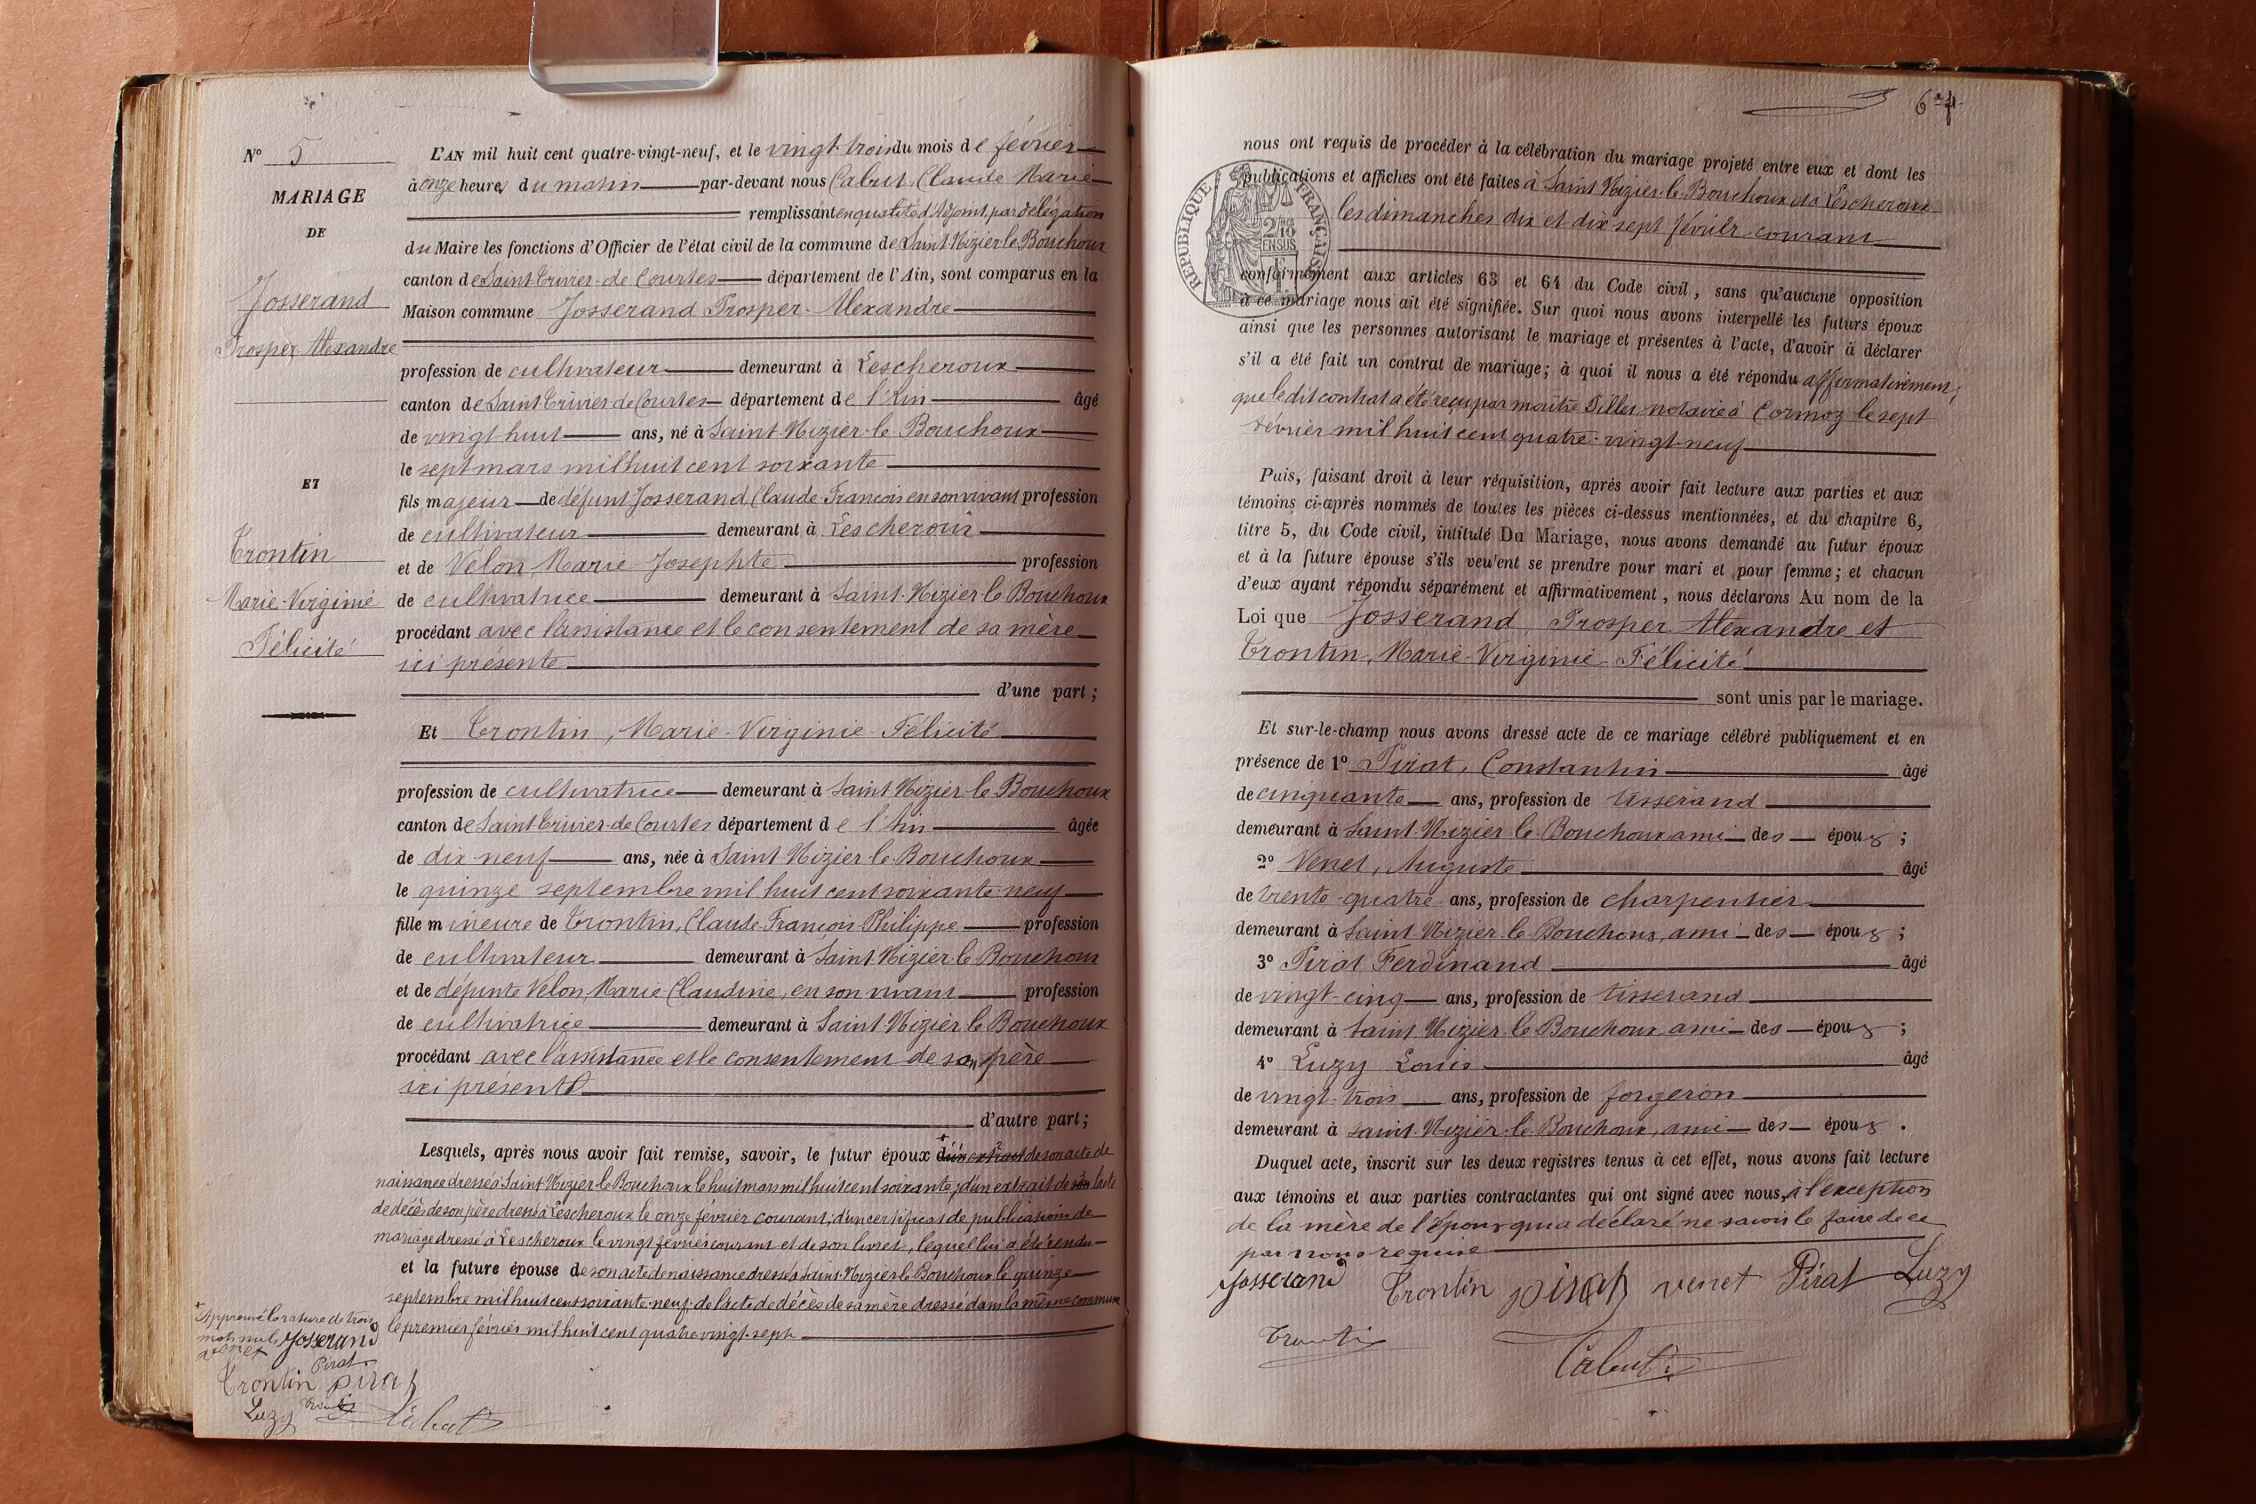 N° 5
MARIAGE
DE
Josserand
Prosper Alexandre
ET
Trontin
Marie-Virginie
Félicité
L'AN mil huit cent quatre-vingt-neuf, et le vingt-trois du mois de février
à onze heures du matin par-devant nous Cabut, Claude Marie
remplissant en qualité d'Adjoint, par délégation
du Maire les fonctions d'Officier de l'état civil de la commune de Saint Nizier le Bouchoux
canton de Saint-Trivier-de Courtes département de l'Ain, sont comparus en la
Maison commune Josserand Prosper-Alexandre
profession de cultivateur demeurant à Lescheroux
canton de Saint Trivier de Courtes département de l'Ain âgé
de vingt-huit ans, né à Saint-Nizier-le Bouchoux
le sept mars mil huit cent soixante
fils majeur de défunt Josserand Claude François en son vivant profession
de cultivateur demeurant à Lescheroux
et de Velon, Marie Josephte profession
de cultivatrice demeurant à Saint-Nizier-le Bouchoux
procédant avec l'assistance et le consentement de sa mère
ici présente
d'une part ;
Et Trontin, Marie-Virginie-Félicité
profession de cultivatrice demeurant à Saint-Nizier-le Bouchoux
canton de Saint Trivier-de-Courtes département de l'Ain âgée
de dix-neuf ans, née à Saint-Nizier-le-Bouchoux
le quinze septembre mil huit cent soixante-neuf
fille mineure de Trontin, Claude François Philippe profession
de cultivateur demeurant à Saint-Nizier-le Bouchoux
et de défunte Velon, Marie Claudine, en son vivant profession
de cultivatrice demeurant à Saint-Nizier-le Bouchoux
procédant avec l'assistance et le consentement de son père
ici présent
d'autre part;
Lesquels, après nous avoir fait remise, savoir, le futur époux d'un extrait de son acte de
naissance dressé à Saint Nizier le Bouchoux le huit mars mil huit cent soixante; d'un extrait de l'acte
de décès de son père dressé à Lescheroux le onze février courant; d'un certificat de publication de
mariage dressé à Lescheroux le vingt février courant et de son livret, lequel lui a été rendu
et la future épouse de son acte de naissance dressé à Saint-Nizier le Bouchoux le quinze
septembre mil huit cent soixante-neuf; de l'acte de décès de sa mère dressé dans la même commune
le premier février mil huit cent quatre vingt-sept
Approuvé la rature de trois
mots nuls Josserand
venet Pirat
Trontin pirat
Luzy Trontin Cabut
67
nous ont requis de procéder à la célébration du mariage projeté entre eux et dont les
publications et affiches ont été faites à Saint Nizier-le-Bouchoux et à Lescheroux
les dimanches dix et dix sept février courant
RÉPUBLIQUE FRANÇAISE
2/10 EN SUS
conformément aux articles 63 et 64 du Code civil, sans qu'aucune opposition
à ce mariage nous ait été signifiée. Sur quoi nous avons interpellé les futurs époux
ainsi que les personnes autorisant le mariage et présentes à l'acte, d'avoir à déclarer
s'il a été fait un contrat de mariage; à quoi il nous a été répondu affirmativement;
que le dit contrat a été reçu par maître notaire à Cormoz le sept
février mil huit cent quatre-vingt-neuf
Puis, faisant droit à leur réquisition, après avoir fait lecture aux parties et aux
témoins ci-après nommés de toutes les pièces ci-dessus mentionnées, et du chapitre 6,
titre 5, du Code civil, intitulé Du Mariage, nous avons demandé au futur époux
et à la future épouse s'ils veulent se prendre pour mari et pour femme; et chacun
d'eux ayant répondu séparément et affirmativement, nous déclarons Au nom de la
Loi que Josserand, Prosper Alexandre et
Trontin, Marie-Virginie-Félicité
sont unis par le mariage.
Et sur-le-champ nous avons dressé acte de ce mariage célébré publiquement et en
présence de 1° Pirat, Constantin âgé
de cinquante ans, profession de tisserand
demeurant à Saint-Nizier-le-Bouchoux ami des époux ;
2° Venet, Auguste âgé
de trente-quatre ans, profession de charpentier
demeurant à Saint Nizier-le Bouchoux, ami des époux ;
3° Pirat Ferdinand âgé
de vingt-cinq ans, profession de tisserand
demeurant à Saint Nizier-le Bouchoux ami des époux ;
4° Luzy Louis âgé
de vingt-trois ans, profession de forgeron
demeurant à Saint-Nizier-le Bouchoux, ami des époux .
Duquel acte, inscrit sur les deux registres tenus à cet effet, nous avons fait lecture
aux témoins et aux parties contractantes qui ont signé avec nous, à l'exception
de la mère de l'époux qui a déclaré ne savoir le faire de ce
par nous requise
Josserand Trontin pirat venet Pirat Luzy
Trontin
Cabut